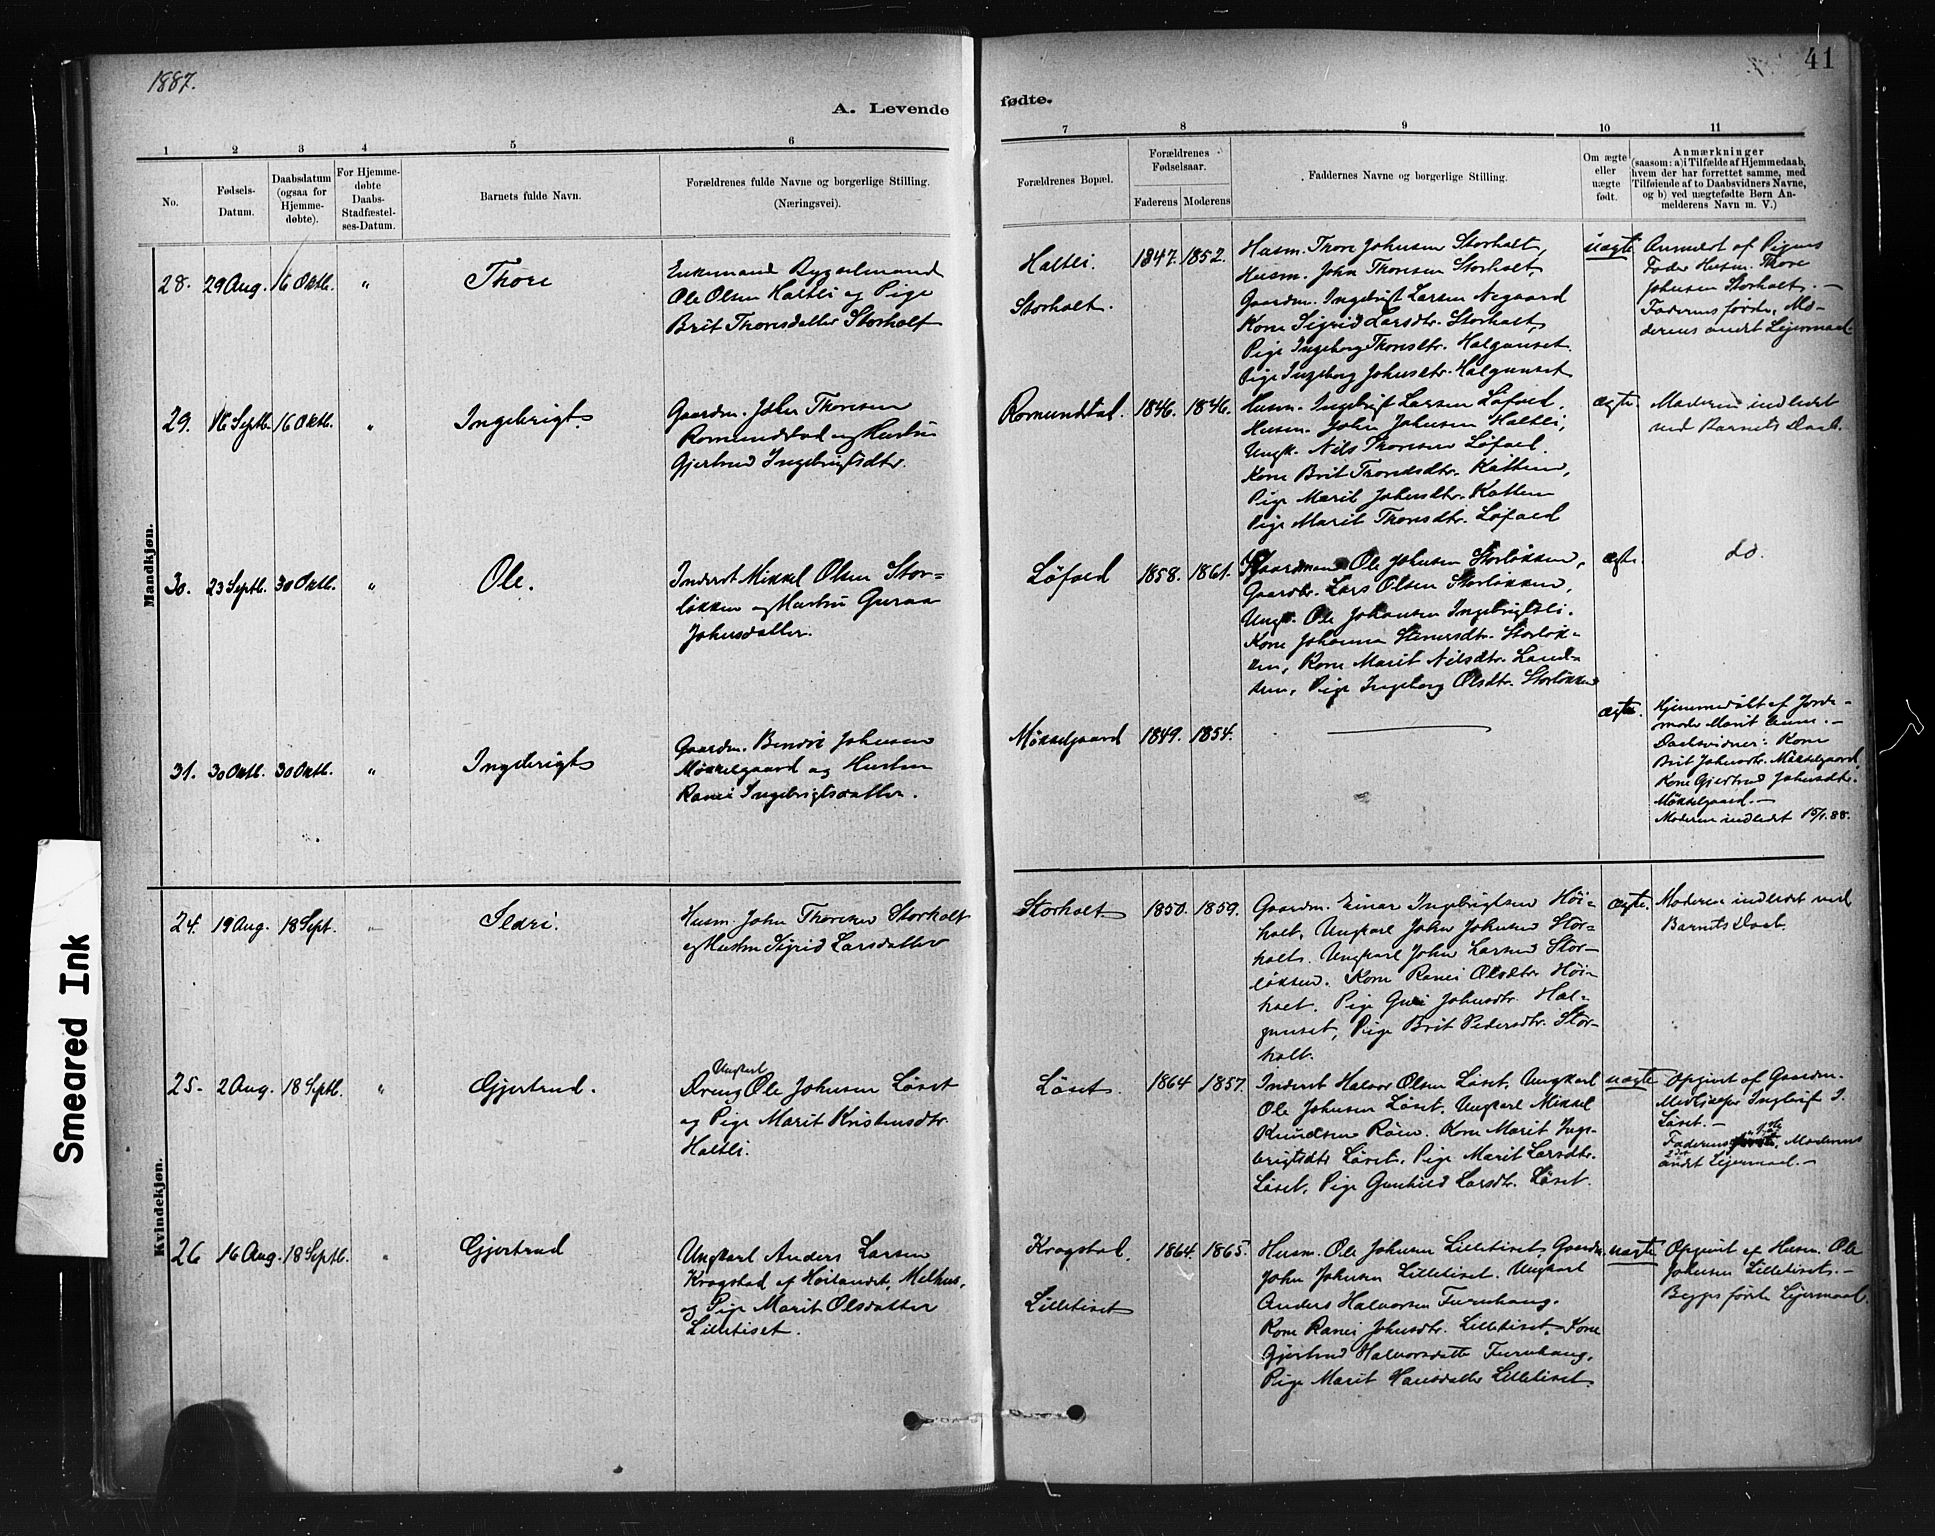 1887.
41
A. Levende
fødte.
1
2
3
4
5
6
7
8
9
10
11
No.
Fødsels-
Datum.
Daabsdatum
(ogsaa for
Hjemme-
døbte).
For Hjemme-
døbte
Daabs-
Stadfæstel-
ses-Datum.
Barnets fulde Navn.
Forældrenes fulde Navne og borgerlige Stilling.
(Næringsvei).
Forældrenes Bopæl.
Forældrenes
Fødselsaar.
Faderens
Moderens
Faddernes Navne og borgerlige Stilling.
Om ægte
eller
uægte
født.
Anmærkninger
(saasom: a) i Tilfælde af Hjemmedaab,
hvem der har forrettet samme, med
Tilføiende af to Daabsvidners Navne,
og b) ved uægtefødte Børn An-
melderens Navn m. V.)
Mandkjøn.
28. 29 Aug. 16 Oktb. "
Thore
Enkemand Bygselmand
Ole Olsen Haltli og Pige
Brit Thoresdatter Storholt
Haltli.
Storholt.
1847. 1852.
Husm. Thore Johnsen Storholt,
Husm. John Thoresen Storholt
Gaardm. Ingebrigt Larsen Aegaard
Kone Sigrid Larsdtr. Storholt,
Pige Ingeborg Thoresdtr. Halgunset.
Pige Ingeborg Johnsdtr. Halgunset
uægte
Anmeldt af Pigens
Fader Husm. Thore
Johnsen Storholt. —
Faderens første, Mo-
derens andet Lejermaal.
29. 16 Septb. 16 Oktb. "
Ingebrigt
Gaardm. John Thoresen
Romundstad og Hustru
Gjertrud Ingebrigtsdtr.
Romundstad.
1846. 1846.
Husm. Ingebrigt Larsen Løfald,
Husm. John Johnsen Haltli,
Ungk. Nils Thoresen Løfald.
Kone Brit Trondsdtr. Kattem,
Pige Marit Johnsdtr. Kattem
Pige Marit Thoresdtr. Løfald
ægte.
Moderen indledet
ved Barnets Daab.
30. 23 Septb. 30 Oktb. "
Ole.
Inderst Mikkel Olsen Stor-
løkken og Hustru Guraa
Johnsdatter.
Løfald
1858. 1861.
Gaardmand Ole Johnsen Storløkken,
Gaardbr. Lars Olsen Storløkken,
Ungk. Ole Johansen Ingebrigtsli.
Kone Johanna Steinersdtr. Storløk-
ken, Kone Marit Nilsdtr. Land-
rum, Pige Ingeborg Olsdtr. Storløkken
ægte.
do.
31. 30 Oktb. 30 Oktb. "
Ingebrigt
Gaardm. Bendix Johnsen
Møkkelgaard og Hustru
Ranei Ingebrigtsdatter.
Møkkelgaard
1849. 1854.
ægte.
Hjemmedøbt af Jorde-
moder Marit Aune. —
Daabsvidner: Kone
Brit Johnsdtr. Møkkelgaard,
Kone Gjertrud Johnsdtr.
Møkkelgaard. —
Moderen indledet 15/1.88.
Kvindekjøn.
24. 19 Aug. 18 Sept. "
Ildri.
Husm. John Thoresen Storholt
og Hustru Sigrid Larsdatter
Storholt
1850. 1859.
Gaardm. Einar Ingebrigtsen Høi-
holt, Ungkarl John Johnsen Stor-
holt. Ungkarl John Larsen Stor-
løkken. Kone Ranei Olsdtr. Høi-
holt. Pige Guri Johnsdtr. Hal-
gunset, Pige Brit Pedersdtr. Stor-
holt.
ægte.
Moderen indledet ved
Barnets Daab.
25. 2 Aug. 18 Septb. "
Gjertrud.
Ungkarl
Dreng Ole Johnsen Løset
og Pige Marit Kristensdtr.
Haltli.
Løset.
1864. 1857.
Inderst Halvor Olsen Løset. Ungkarl
Ole Johnsen Løset. Ungkarl Mikkel
Knudsen Røen. Kone Marit Inge-
brigtsdtr Løset. Pige Marit Larsdtr.
Løset, Pige Gunhild Larsdtr. Løset.
uægte
Opgivet af Gaardm.
Medhjælper Ingebrigt J.
Løset. —
Faderens Moderens
andet Lejermaal. —
26 16 Aug. 18 Septb. "
Gjertrud
Ungkarl Anders Larsen
Kragstad af Høilandet, Melhus,
og Pige Marit Olsdatter
Lilletiset.
Kragstad.
Lilletiset
1864. 1865.
Husm. Ole Johnsen Lilletiset, Gaardm.
John Johnsen Lilletiset. Ungkarl
Anders Halvorsen Furuhaug.
Kone Ranei Johnsdtr. Lilletiset, Kone
Gjertrud Halvorsdatter Furuhaug,
Pige Marit Hansdatter Lilletiset.
uægte
Opgivet af Husm. Ole
Johnsen Lilletiset. —
Begges første Lejermaal.
Smeared Ink